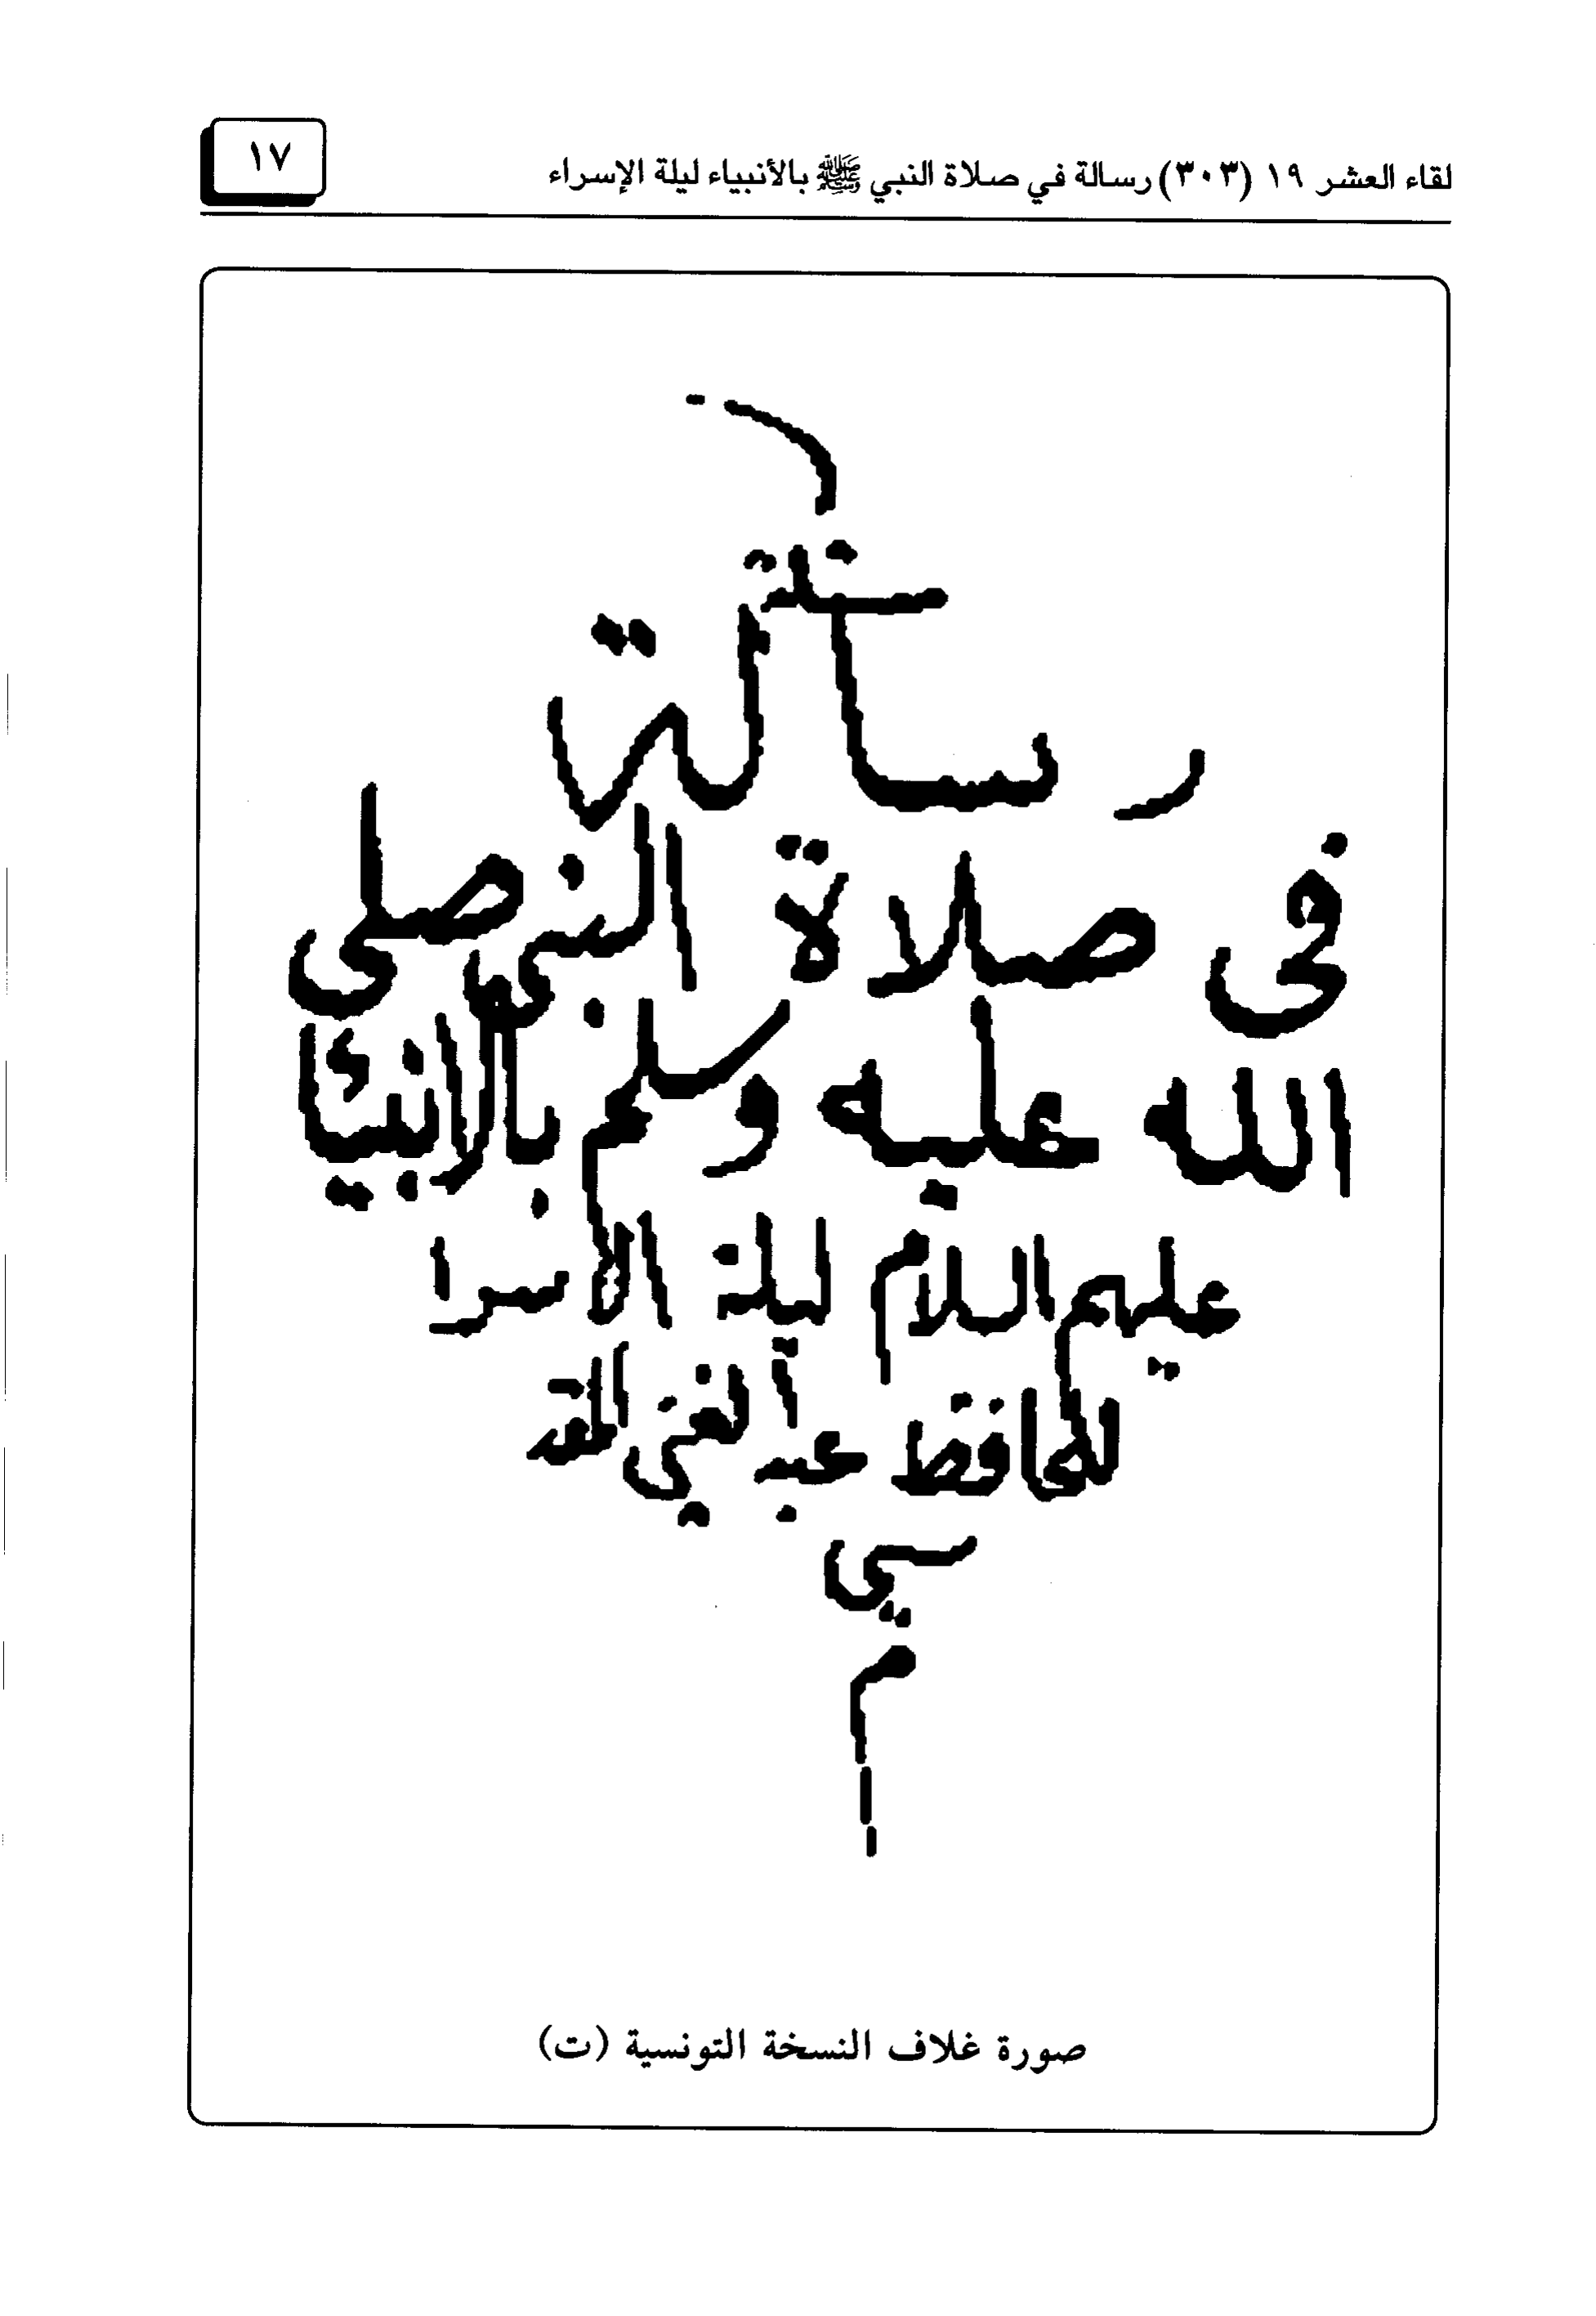 لقاء العشر ١٩ (٣٠٣) رسالة في صلاة النبي ﷺ بالأنبياء ليلة الإسراء
١٧
رسالة
فى صلاة النبي صلى
الله عليه وسلم بالانبيا
عليهم السلام ليلة الاسرا
للحافظ عبد الغني المقد
سي
م
صورة غلاف النسخة التونسية (ت)